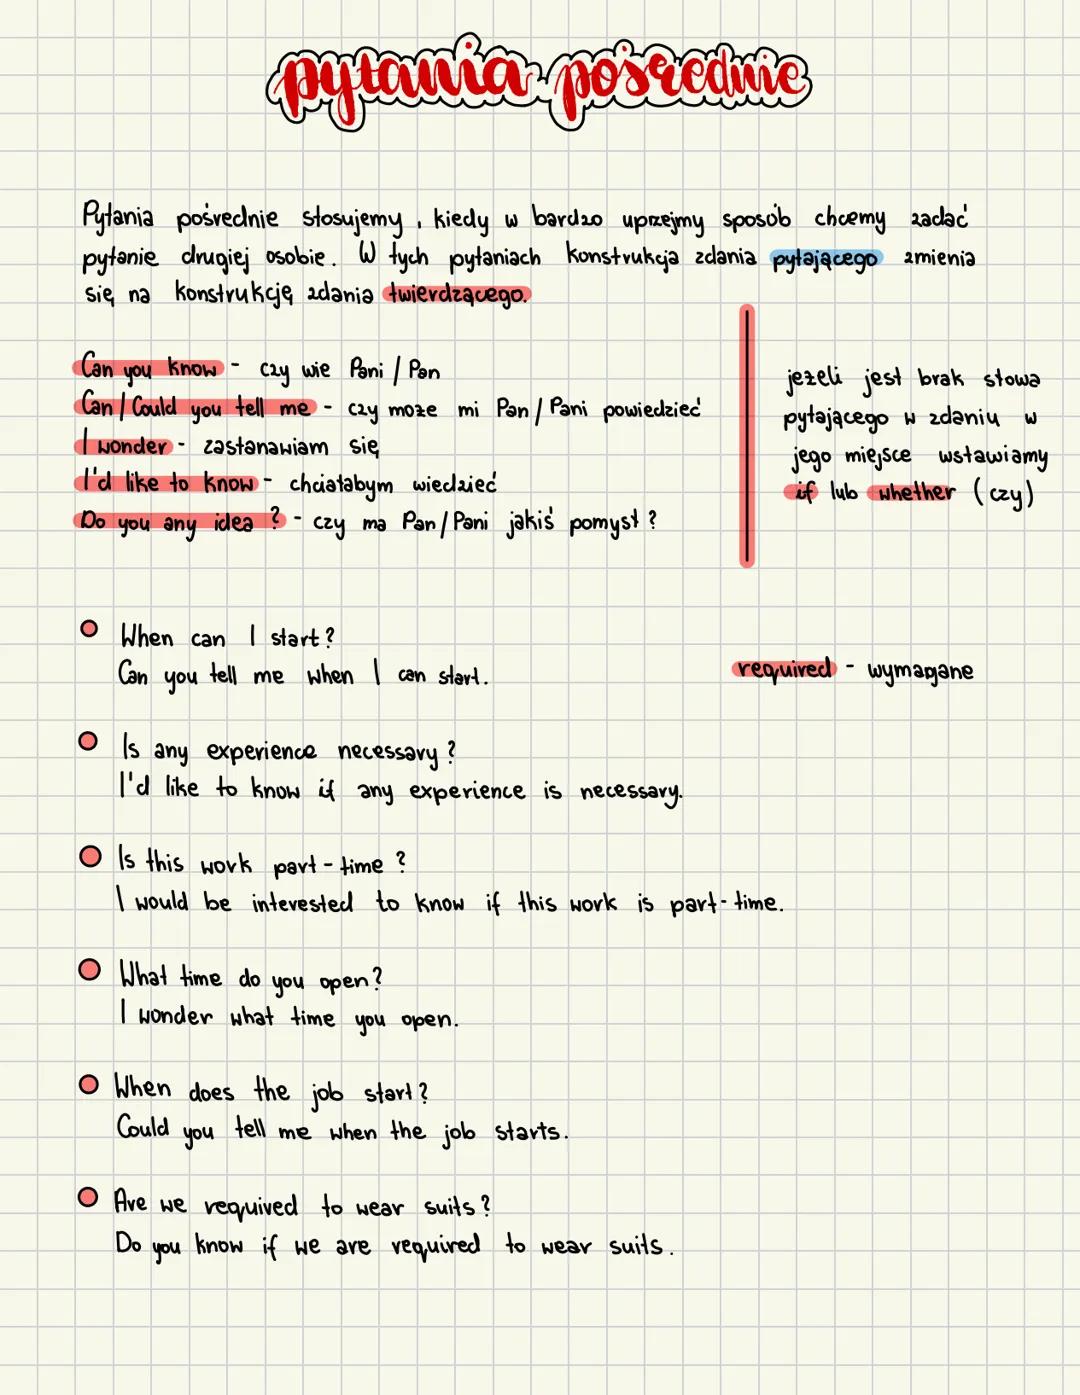 pytania pośrednie
Pytania pośrednie stosujemy, kiedy w bardzo uprzejmy sposób chcemy zadać
pytanie drugiej osobie. W tych pytaniach konstrukcja zdania pytającego zmienia
się na konstrukcję zdania twierdzącego.
Can you know - czy wie Pani / Pan
Can / Could you tell me - czy może mi Pan / Pani powiedzieć
I wonder - zastanawiam się
I'd like to know - chciałabym wiedzieć
Do you any idea ? - czy ma Pan / Pani jakiś pomysł ?
jeżeli jest brak słowa
pytającego w zdaniu w
jego miejsce wstawiamy
if lub whether (czy)
When can I start?
Can you tell me when I can start.
required - wymagane
Is any experience necessary?
I'd like to know if any experience is necessary.
Is this work part-time ?
I would be interested to know if this work is part-time.
What time do you open?
I wonder what time you open.
When does the job start?
Could you tell me when the job starts.
Are we required to wear suits?
Do you know if we are required to wear suits.